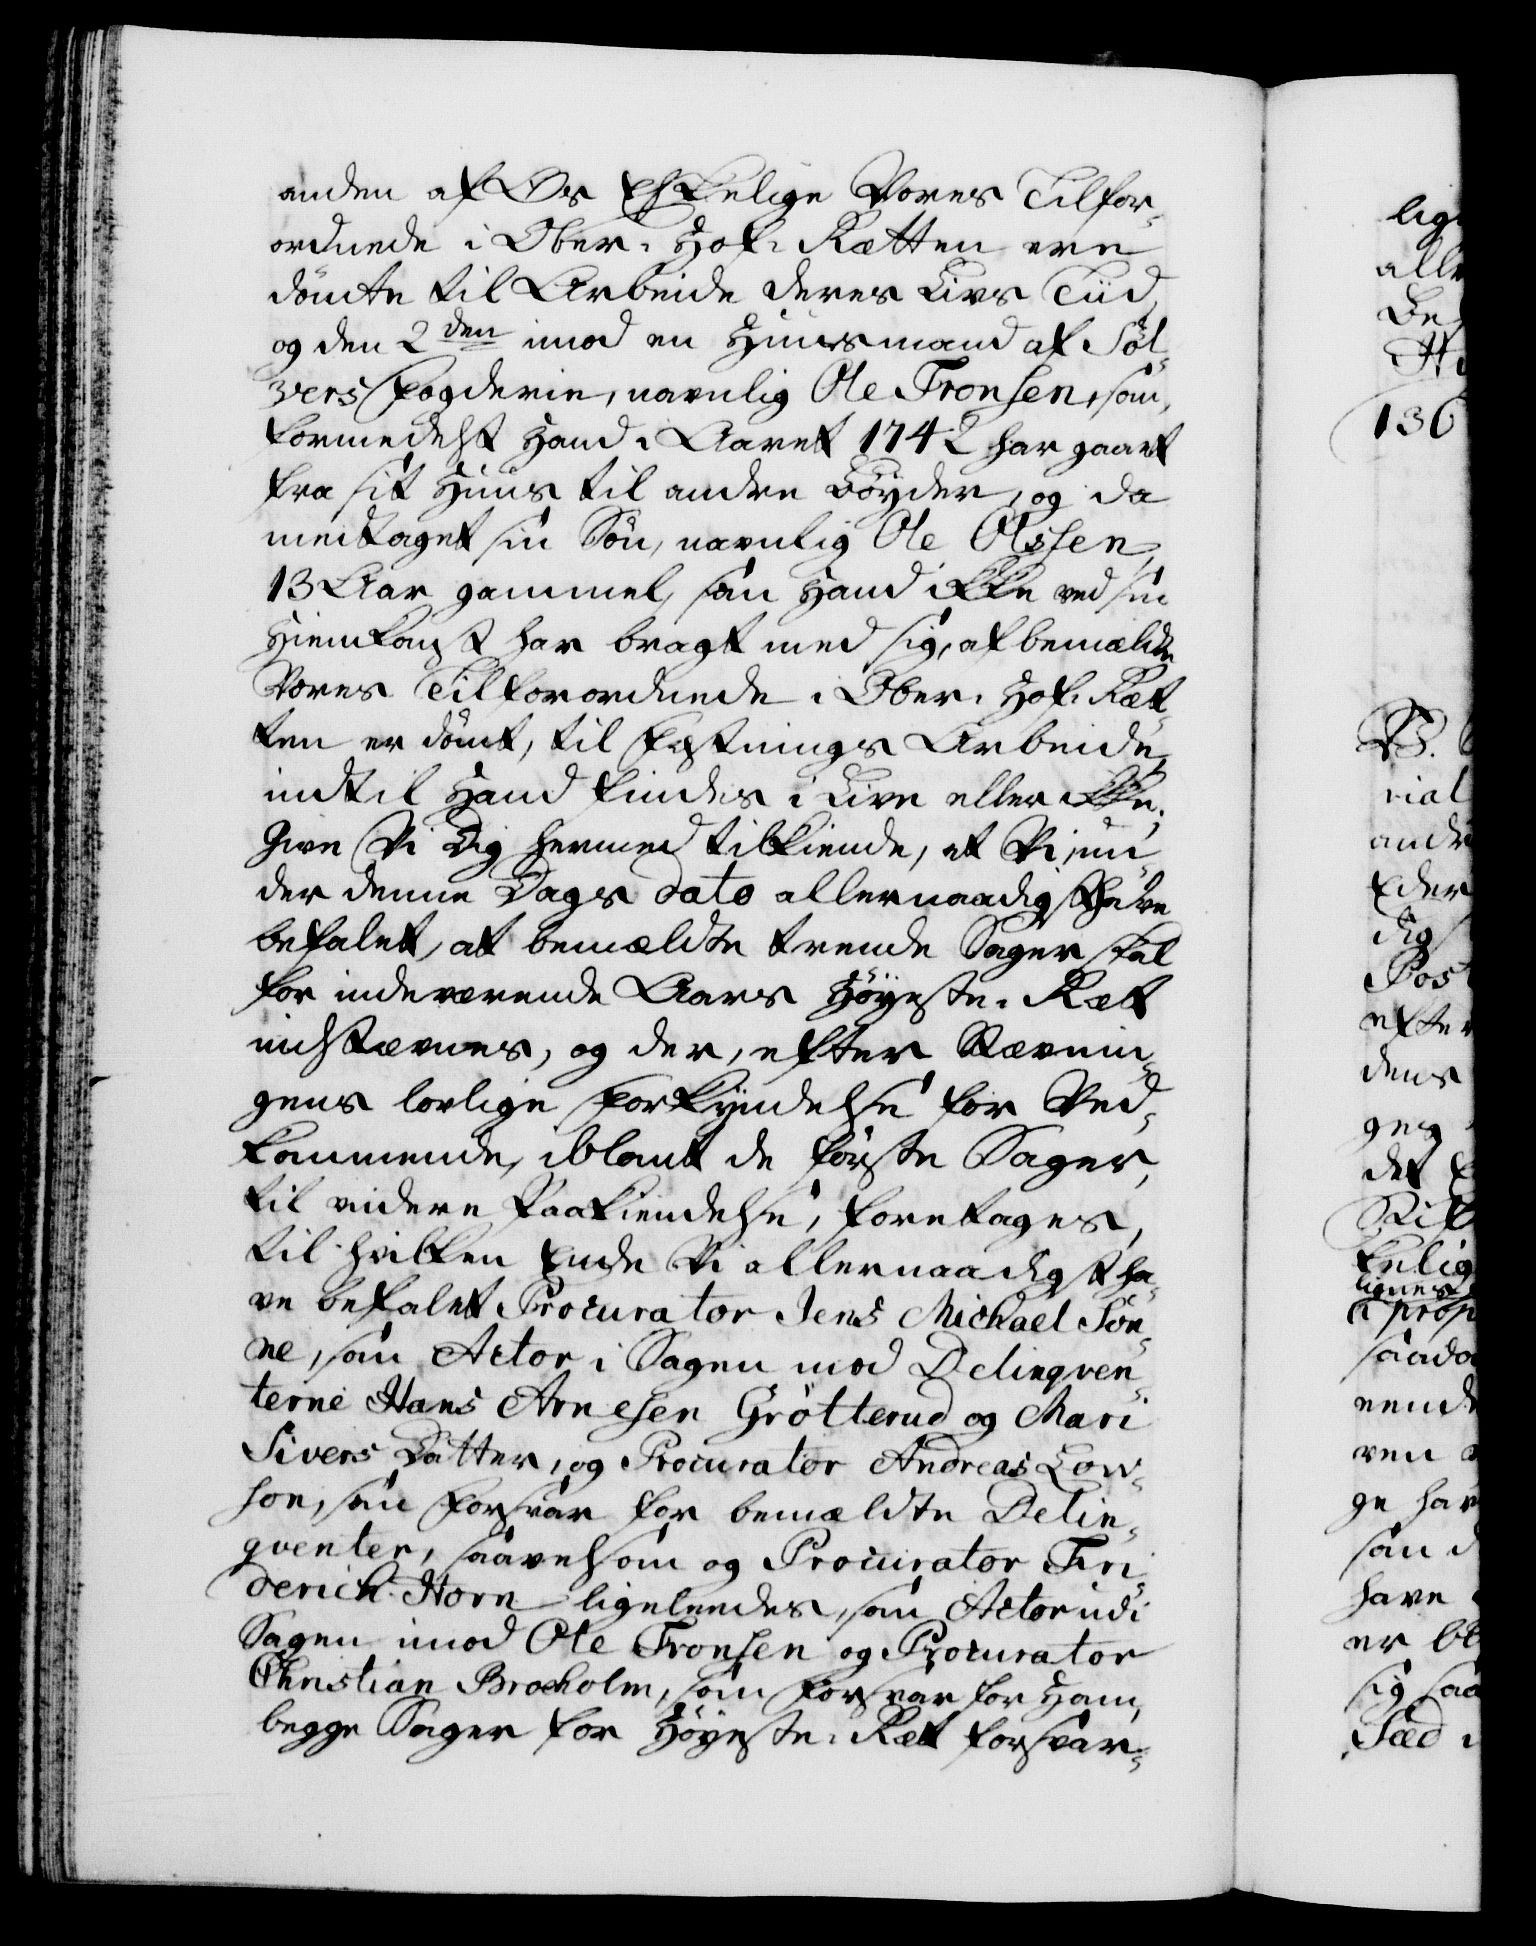 anden af Os Elskelige Vores Tilfor-
ordnede i Ober-Hof-Retten ere
dömte til Arbeide deres Livs Tiid,
og den 2den imod en Huusmand af Söl-
vers Fogderie, navnlig Ole Fronsen, som,
formedelst Hand i Aaret 1742 har gaaet
fra sit Huus til andre Böyder, og da
medtaget sin Sön, navnlig Ole Olssen,
13 Aar gammel, som Hand ikke ved sin
Hiemkomst har bragt med sig, af bemældte
Vores Tilforordnede i Ober-Hof-Ret-
ten er dömt, til Fæstnings Arbeide,
indtil Hand findes i Live eller ikke;
Give Vi Dig hermed tilkiende, at Vi, un-
der denne Dags dato allernaadigst have
befalet, at bemældte trende Sager skal
for indeværende Aars Höyeste-Ret
indstævnes, og der, efter Stævnin-
gens lovlige Forkyndelse for Ved-
kommende, iblant de förste Sager,
til videre Paakiendelse, foretages,
til hvilken Ende Vi allernaadigst ha-
ve befalet Procurator Jens Michael Sön-
ne, som Actor i Sagen mod Delinqven-
terne Hans Arnesen Grötterud og Mari
Sivers Datter, og Procurator Andreas Low-
son, som Forsvar for bemældte Delin-
qventer, saavelsom og Procurator Fri-
derich Horn ligeledes, som Actor udi
Sagen imod Ole Fronsen og Procurator
Christian Brocholm, som Forsvar for Ham,
begge Sager for Höyeste-Ret forsvar-
lig
136